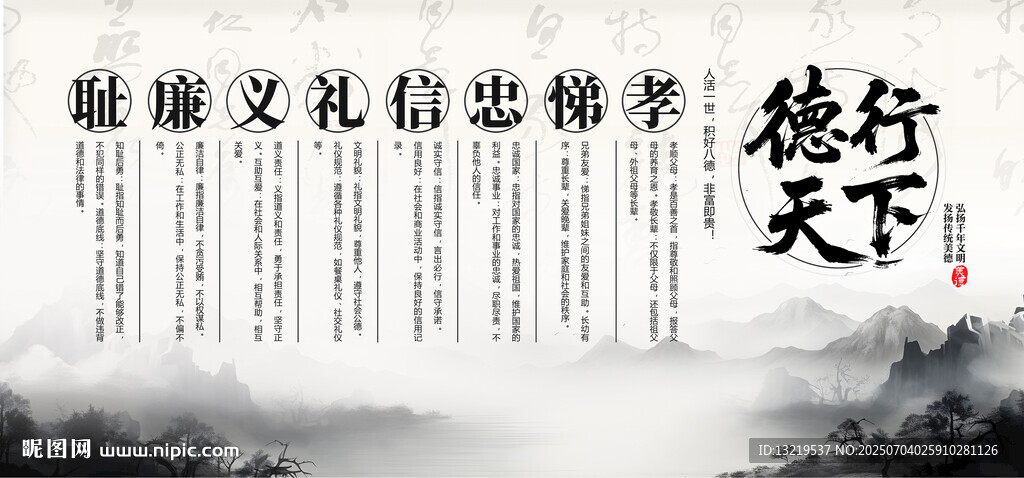 行
德
下
天
弘扬千年文明
发扬传统美德
人活一世，积好八德，非富即贵！
孝
孝顺父母：孝是百善之首，指尊敬和照顾父母，报答父
母的养育之恩。孝敬长辈：不仅限于父母，还包括祖父
母、外祖父母等长辈。
悌
兄弟友爱：悌指兄弟姐妹之间的友爱和互助。长幼有
序：尊重长辈，关爱晚辈，维护家庭和社会的秩序。
忠
忠诚国家：忠指对国家的忠诚，热爱祖国，维护国家的
利益。忠诚事业：对工作和事业的忠诚，尽职尽责，不
辜负他人的信任。
信
诚实守信：信指诚实守信，言出必行，信守承诺。
信用良好：在社会和商业活动中，保持良好的信用记
录。
礼
文明礼貌：礼指文明礼貌，尊重他人，遵守社会公德。
礼仪规范：遵循各种礼仪规范，如餐桌礼仪、社交礼仪
等。
义
道义责任：义指道义和责任，勇于承担责任，坚守正
义。互助互爱：在社会和人际关系中，相互帮助，相互
关爱。
廉
廉洁自律：廉指廉洁自律，不贪污受贿，不以权谋私。
公正无私：在工作和生活中，保持公正无私，不偏不
倚。
耻
知耻后勇：耻指知耻而后勇，知道自己错了能够改正，
不犯同样的错误。道德底线：坚守道德底线，不做违背
道德和法律的事情。
昵图网 www.nipic.com
ID:13219537 NO:20250704025910281126